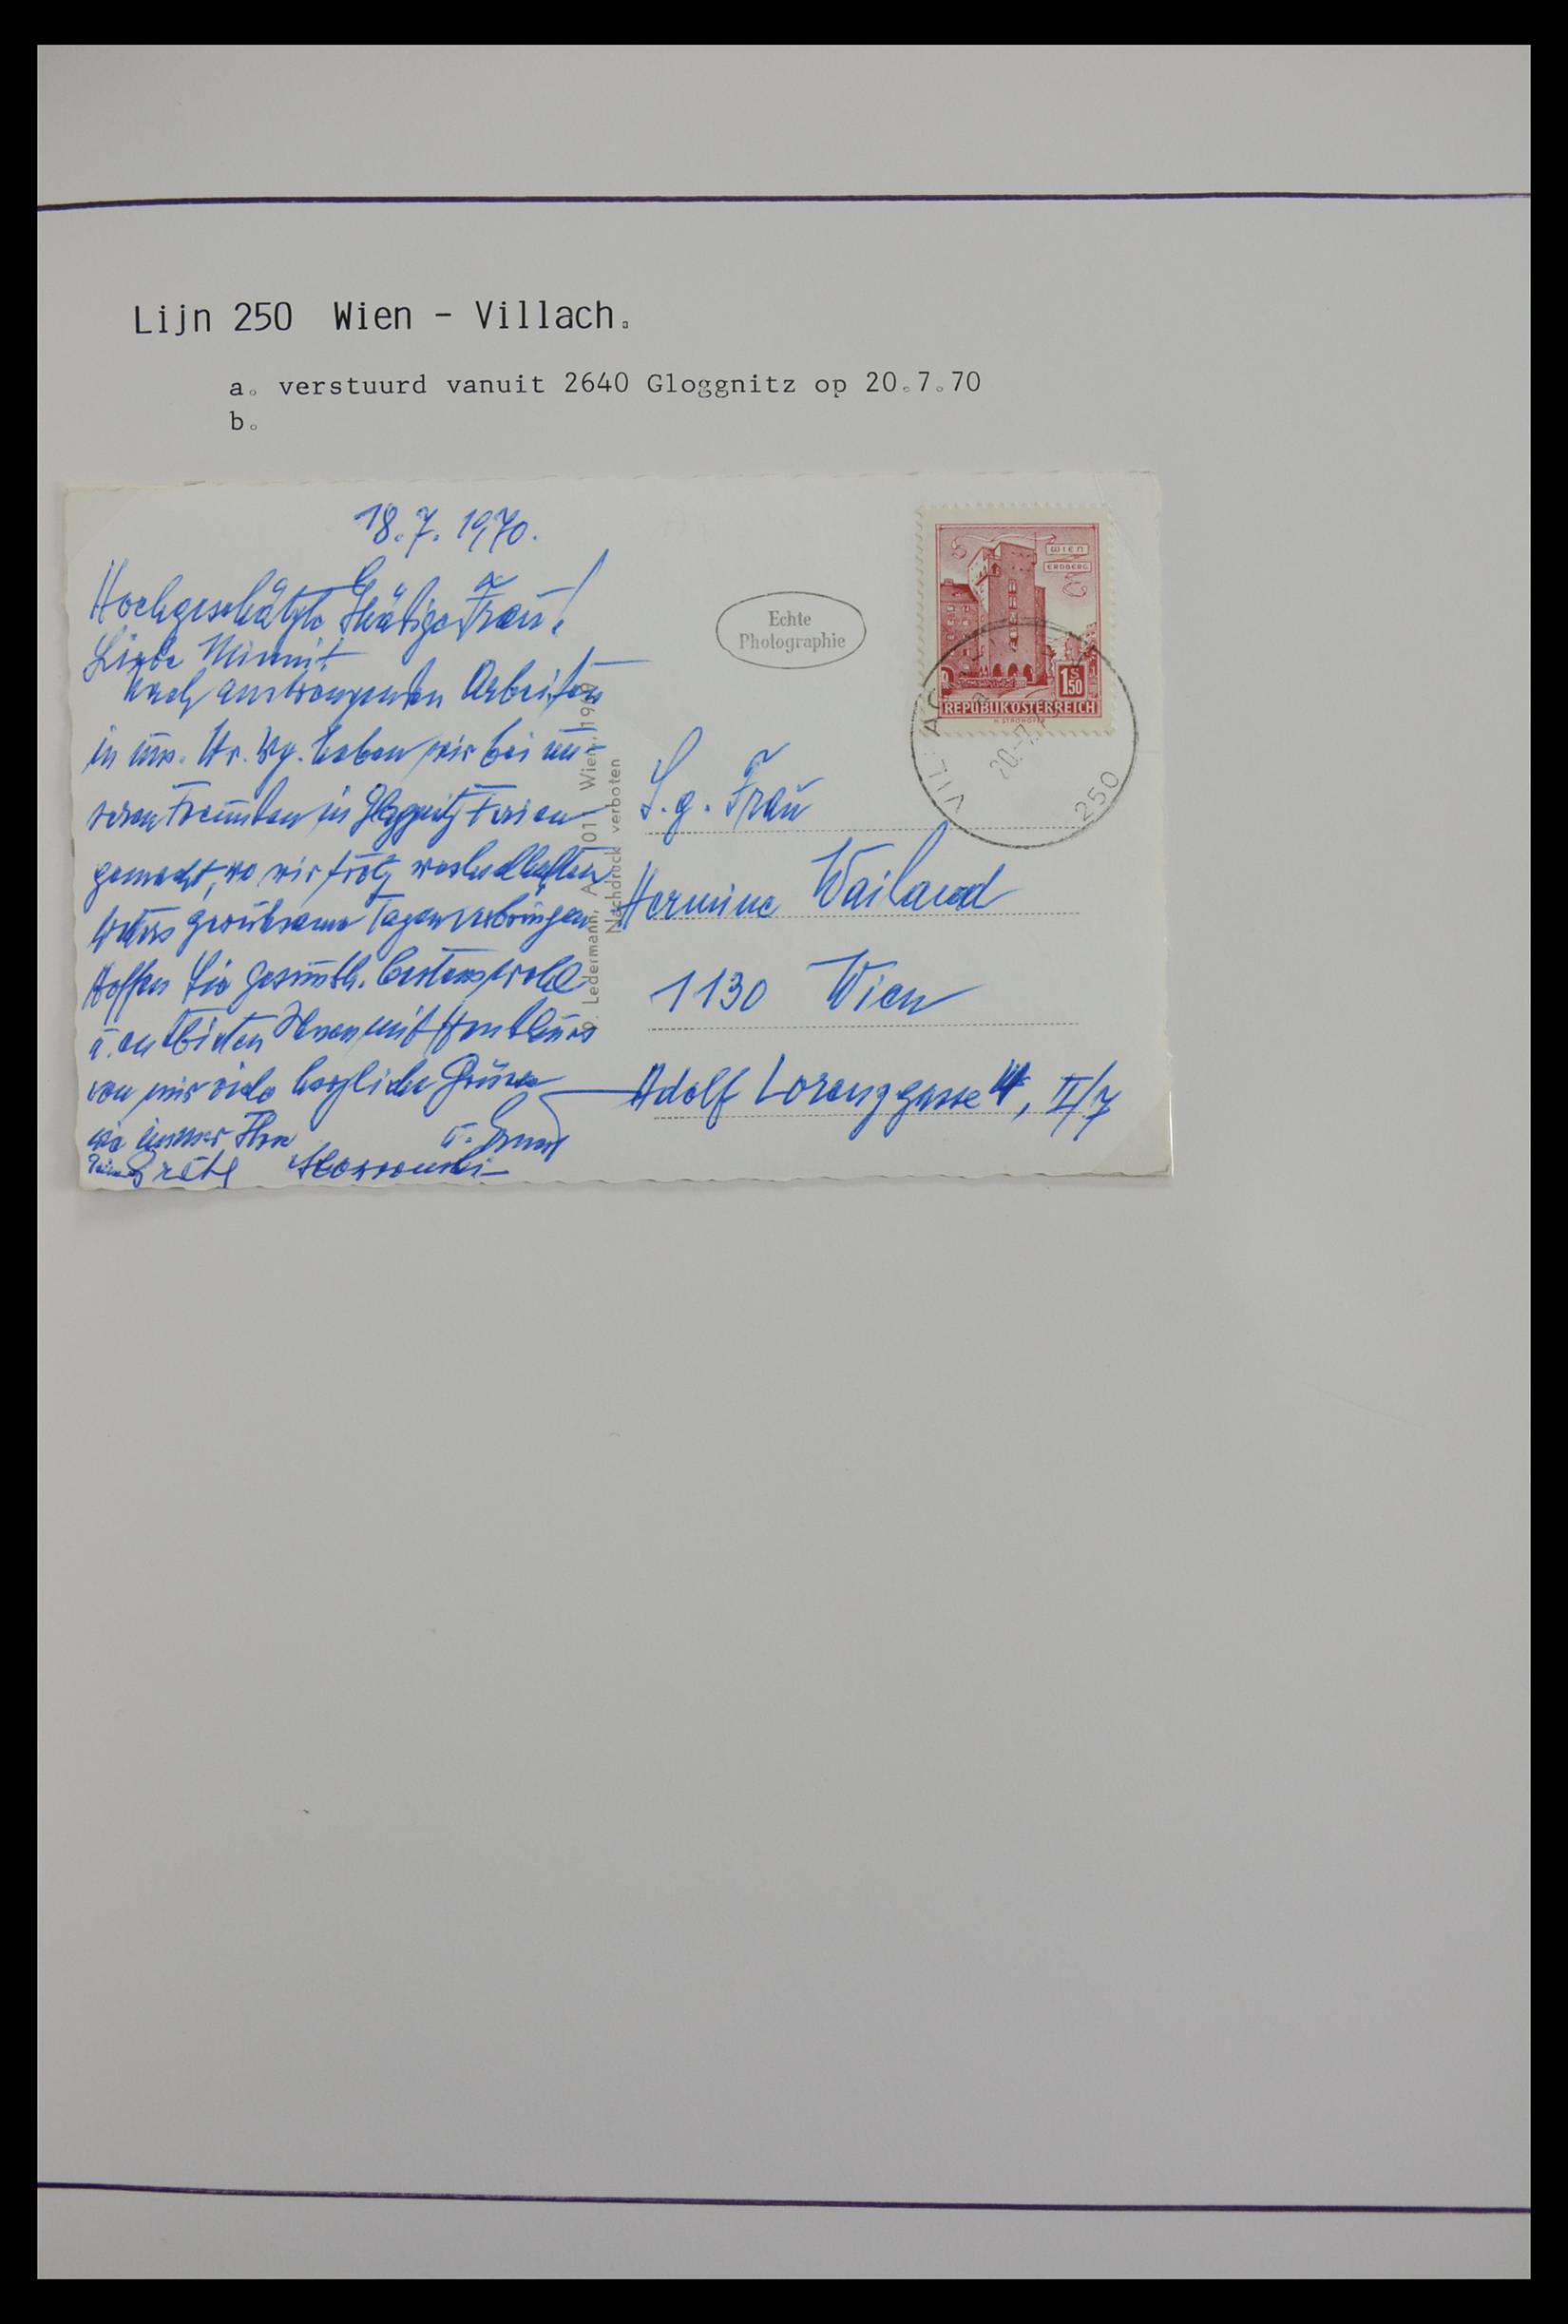 Lijn 250 Wien - Villach.
a. verstuurd vanuit 2640 Gloggnitz op 20.7.70
b.
18.7.1970.
Hochgeschätzte Gnädige Frau!
Liebe
Nach anstrengenden Arbeiten
in uns. Wr. Wg. haben wir bei un-
seren Freunden in Gloggnitz Ferien
gemacht, wo wir trotz wechselhaften
Wetters geruhsame Tage verbringen
Hoffen Sie gesundh. bestens wohl
u. entbieten Ihnen mit
von mir viele herzliche Grüsse
wie immer Ihre
Gretl
u. Ernst
P. Ledermann, A 1011 Wien, 1969
Nachdruck verboten
Echte
Photographie
WIEN
ERDBERG
1S
50
REPUBLIK ÖSTERREICH
H. STROHOFER
VILLACH
20.-7.
250
S.g. Frau
Hermine Wailand
1130 Wien
Adolf Lorenzgasse 4, II/7